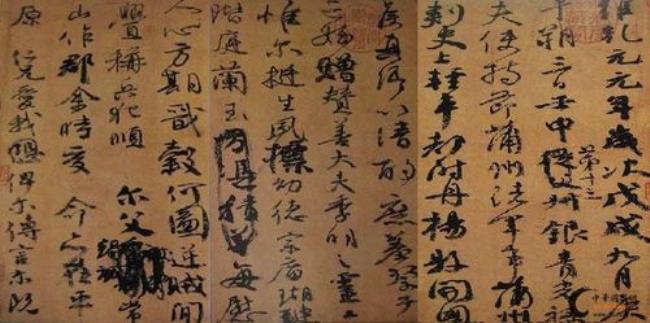 維乾元元年歲次戊戌九月庚
午朔三日壬申第十三叔銀青光祿
夫使持節蒲州諸軍事蒲州
刺史上輕車都尉丹楊縣開國
侯真卿以清酌庶羞祭于
亡姪贈贊善大夫季明之靈曰
惟爾挺生夙標幼德宗廟瑚璉
階庭蘭玉方憑積善每慰
人心方期戩穀何圖逆賊閒
釁稱兵犯順爾父常
山作郡余時受命亦在平
原仁兄愛我俾爾傳言爾既